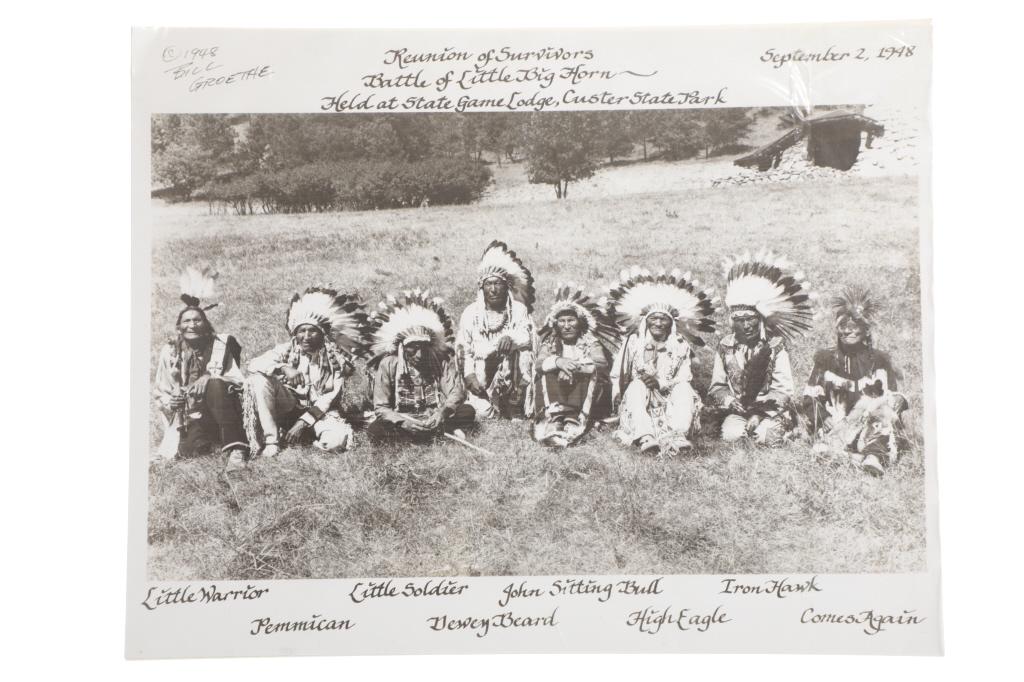 © 1948
BILL
GROETHE
Reunion of Survivors
Battle of Little Big Horn
Held at State Game Lodge, Custer State Park
September 2, 1948
Little Warrior
Little Soldier
John Sitting Bull
Iron Hawk
Pemmican
Dewey Beard
High Eagle
Comes Again